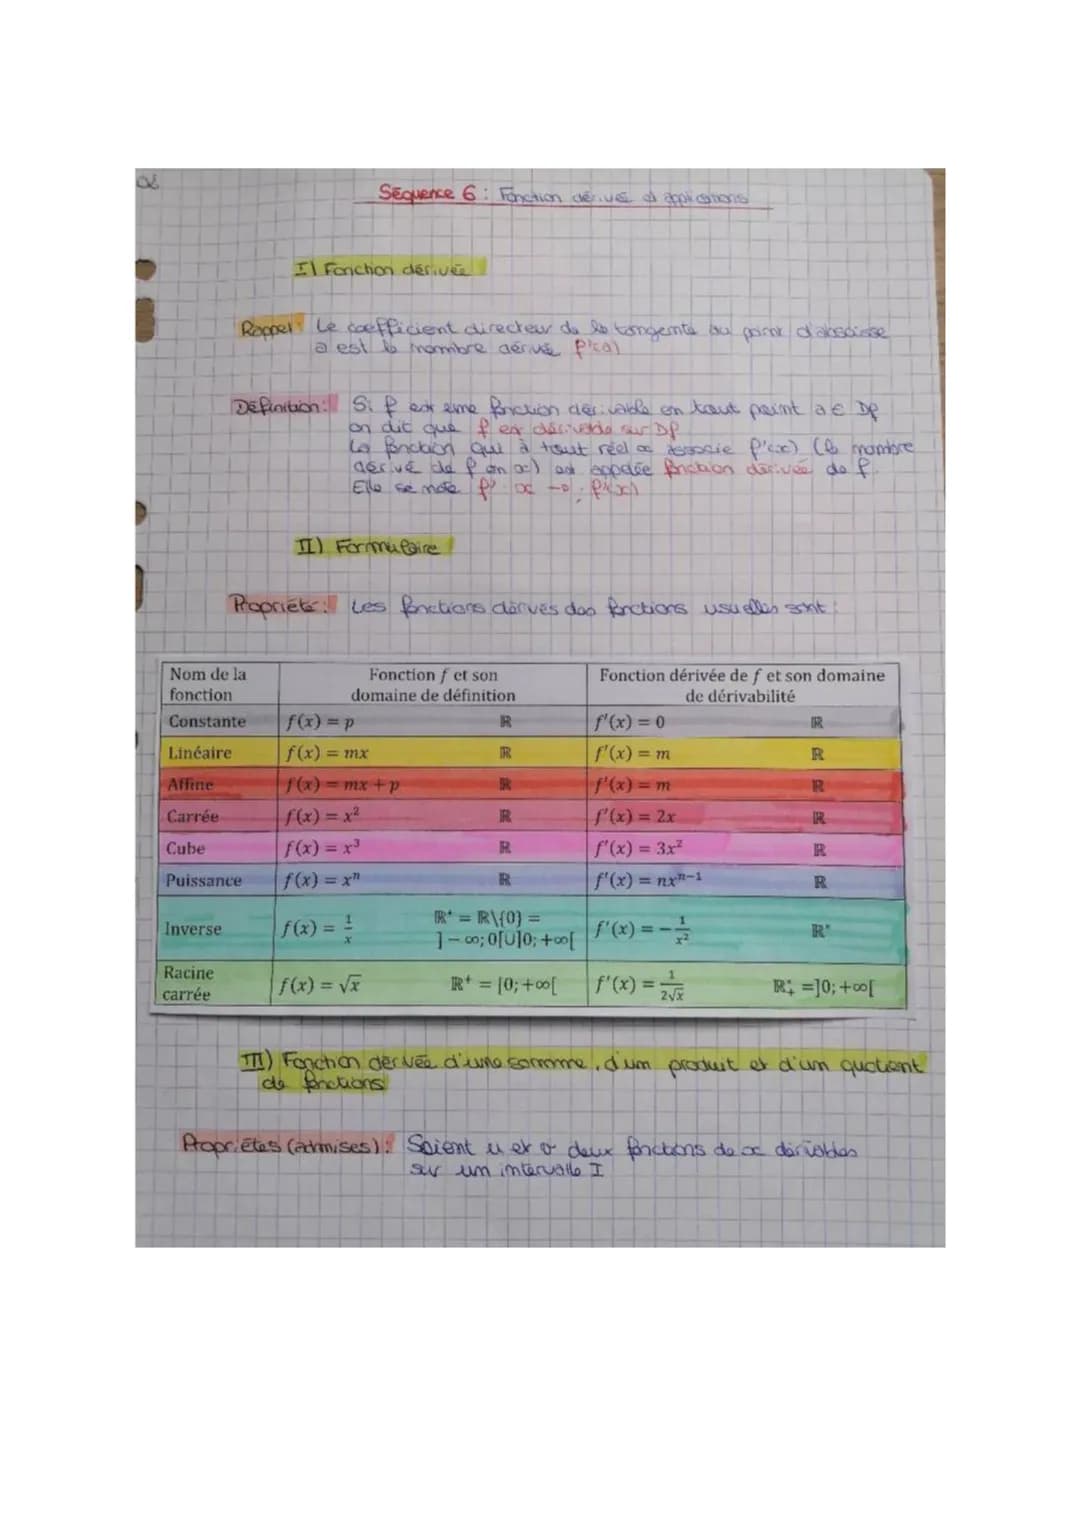 Séquence 6 : Fonction dérivée et applications
I) Fonction dérivée
Rappel : Le coefficient directeur de la tangente au point d'abscisse
a est le nombre dérivé f'(a)
Définition : Si f est une fonction dérivable en tout point a ∈ Df
on dit que f est dérivable sur Df
La fonction qui à tout réel x associe f'(x) (le nombre
dérivé de f en x) est appelée fonction dérivée de f.
Elle se note f' : x → f'(x)
II) Formulaire
Propriété : Les fonctions dérivés des fonctions usuelles sont :
Nom de la fonction | Fonction f et son domaine de définition | Fonction dérivée de f et son domaine de dérivabilité
Constante f(x) = p ℝ f'(x) = 0 ℝ
Linéaire f(x) = mx ℝ f'(x) = m ℝ
Affine f(x) = mx + p ℝ f'(x) = m ℝ
Carrée f(x) = x² ℝ f'(x) = 2x ℝ
Cube f(x) = x³ ℝ f'(x) = 3x² ℝ
Puissance f(x) = xⁿ ℝ f'(x) = nxⁿ⁻¹ ℝ
Inverse f(x) = 1/x ℝ* = ℝ\{0} = ]−∞; 0[∪]0; +∞[ f'(x) = −1/x² ℝ*
Racine carrée f(x) = √x ℝ⁺ = [0; +∞[ f'(x) = 1/(2√x) ℝ*₊ =]0; +∞[
III) Fonction dérivée d'une somme, d'un produit et d'un quotient
de fonctions
Propriétés (admises) : Soient u et v deux fonctions de x dérivables
sur un intervalle I